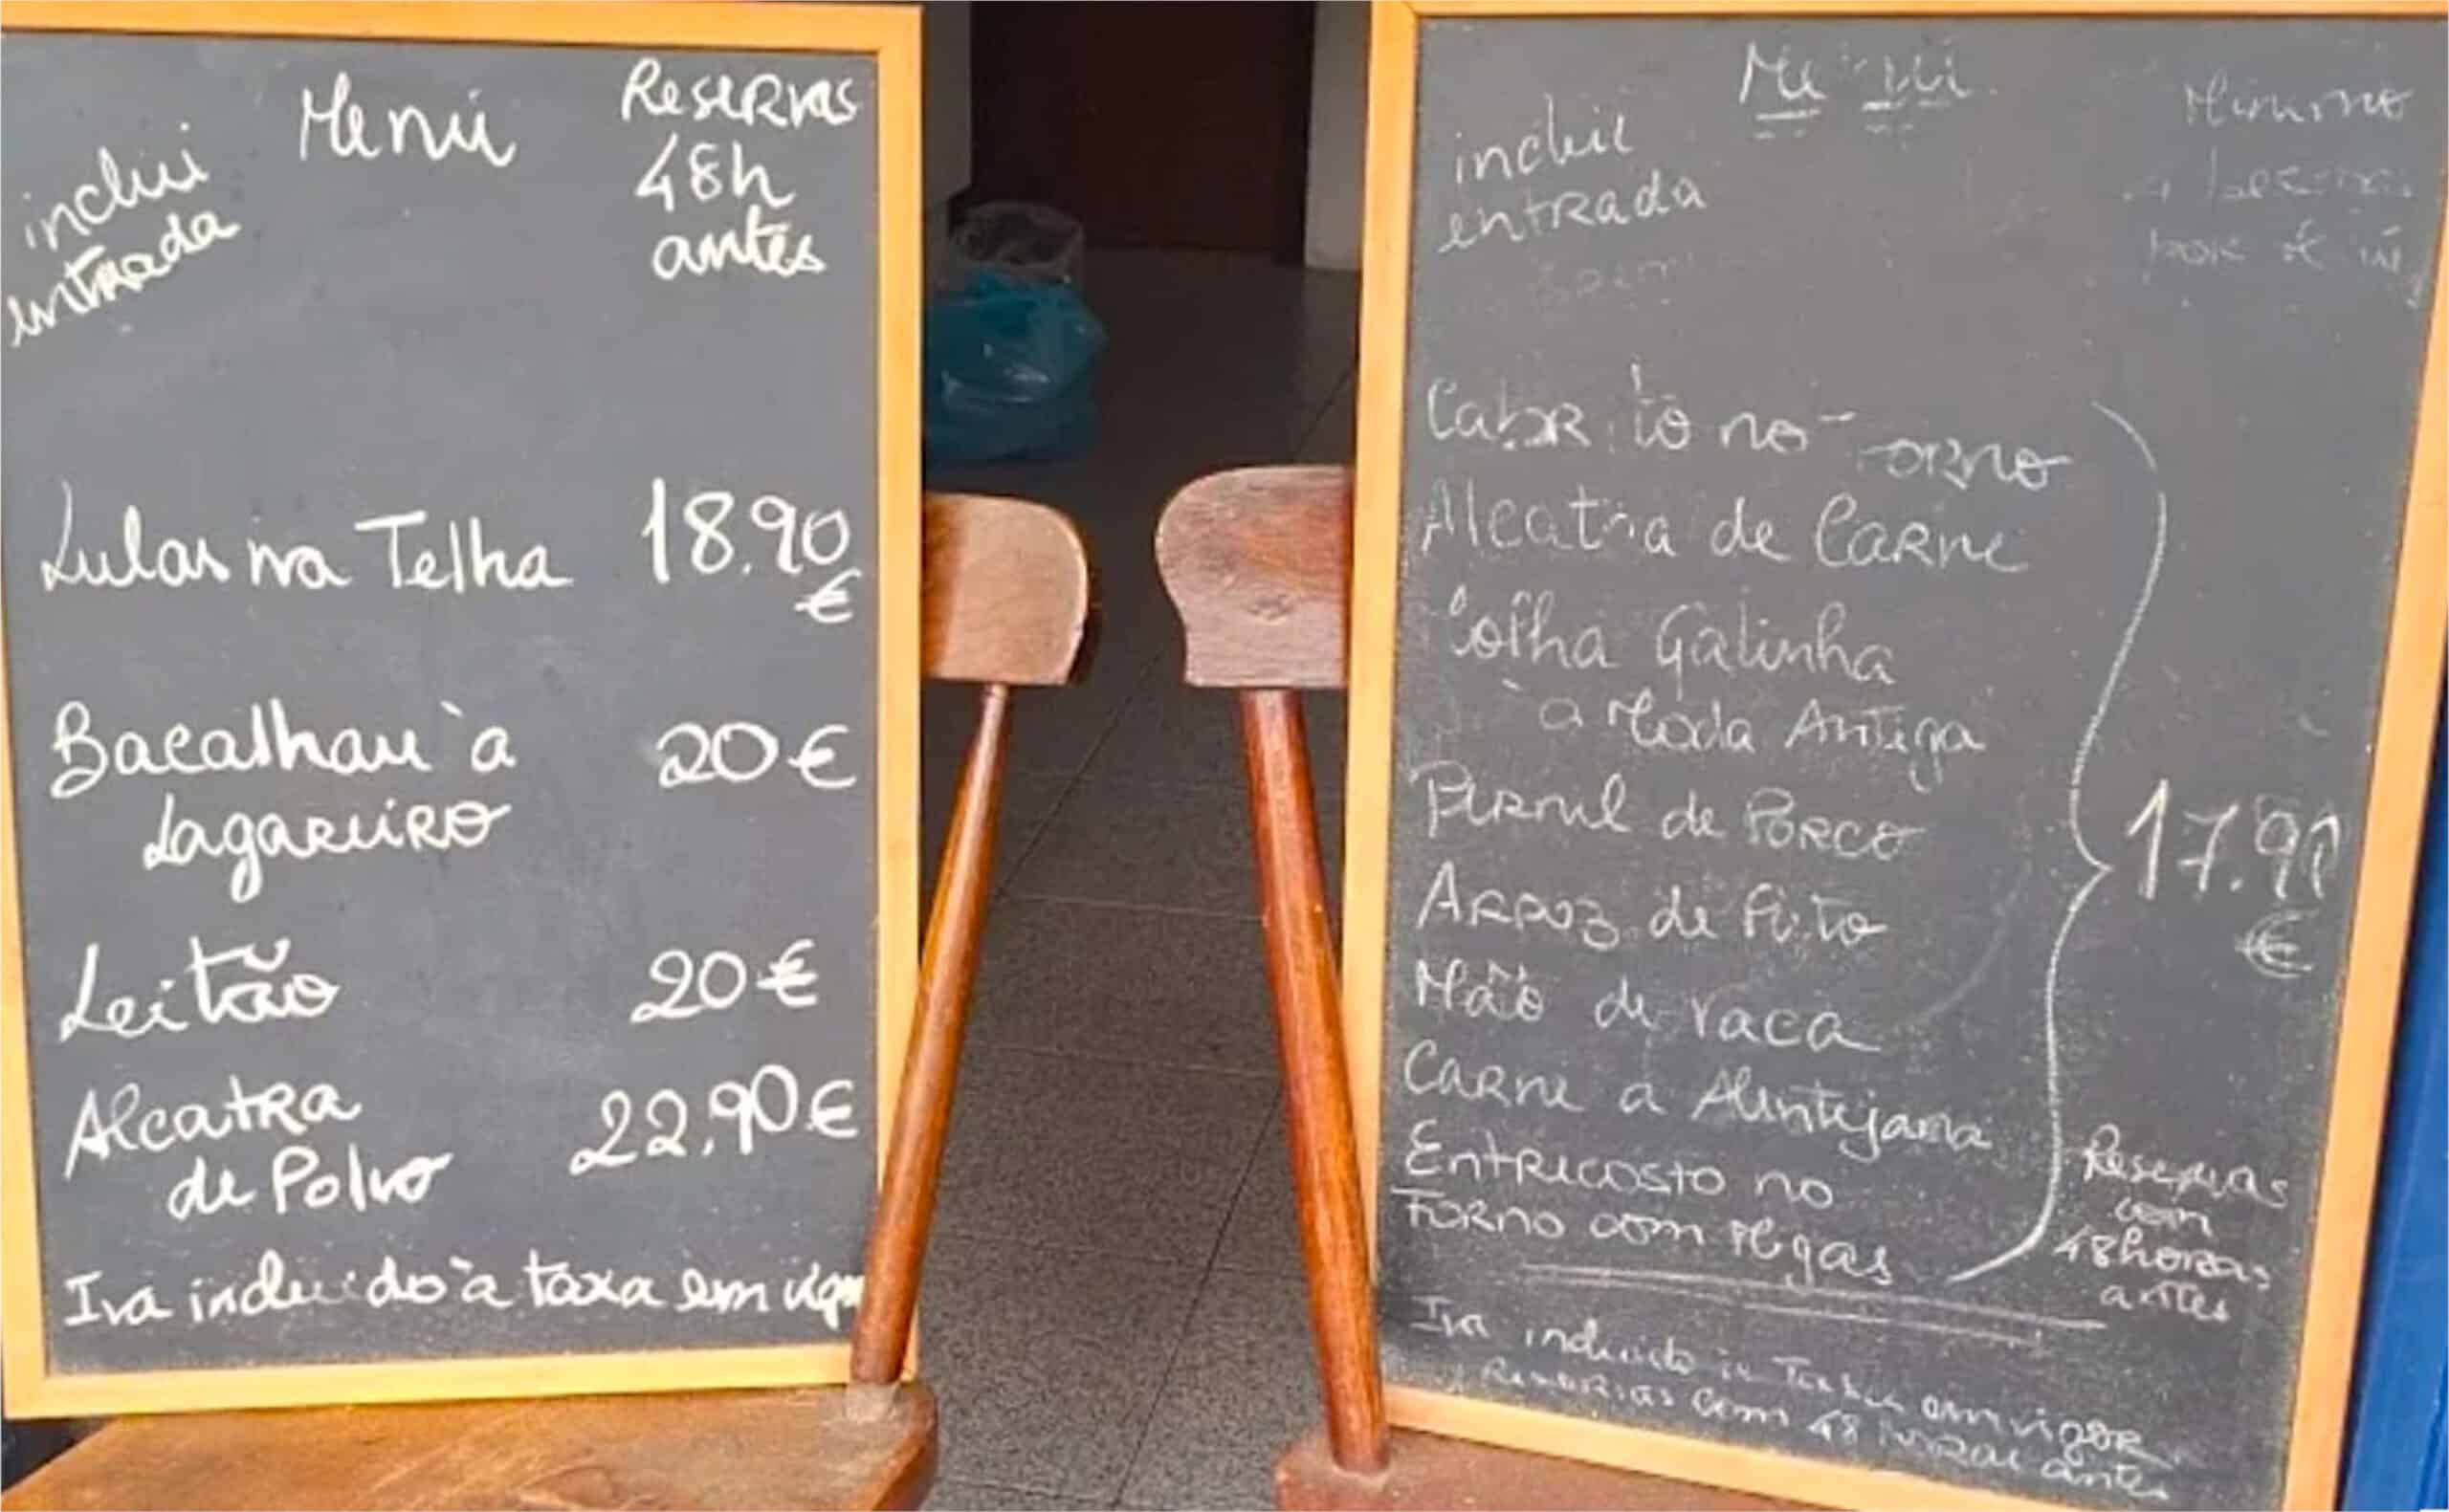 Menú
inclui
entrada
Reservas
48h
antes
Lulas na Telha 18.90
€
Bacalhau à 20€
Lagareiro
Leitão 20€
Alcatra 22,90€
de Polvo
Iva incluido à taxa em vigor
Menú
incluie
entrada
Minimo
4 pessoas
por
Cabrito no Forno
Alcatra de Carne
Galinha
à Moda Antiga
Pernil de Porco
Arroz de Pato
Mão de vaca
Carne a Alentejana
Entrecosto no
Forno com Migas
17.90
€
Reservas
com
48horas
antes
Iva incluido à Taxa em vigor
Reservas com 48 horas antes